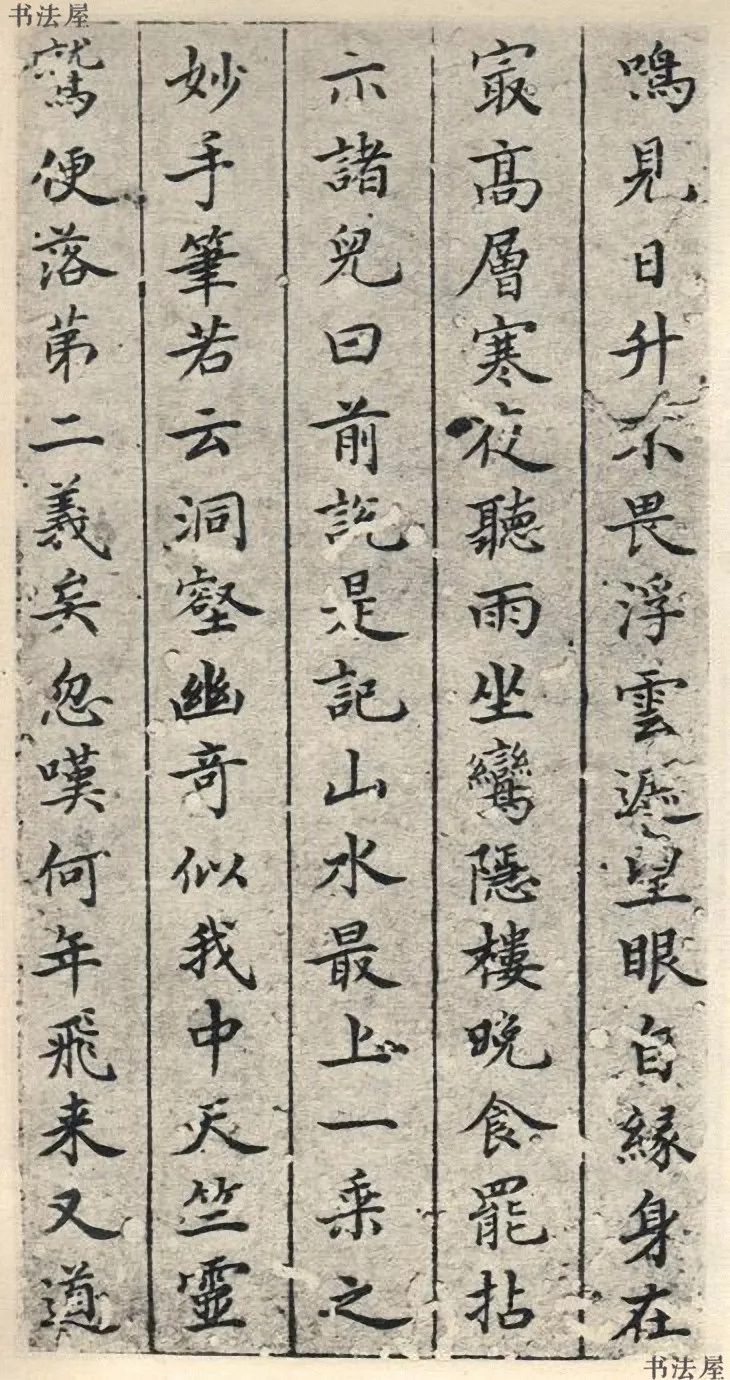 书法屋
鳴見日升不畏浮雲遮望眼自緣身在
㝡高層寒夜聽雨坐鸞隱樓晚食罷拈
示諸兒曰前說是記山水最上一乘之
妙手筆若云洞壑幽奇似我中天竺靈
鷲便落第二義矣忽嘆何年飛来又道
书法屋